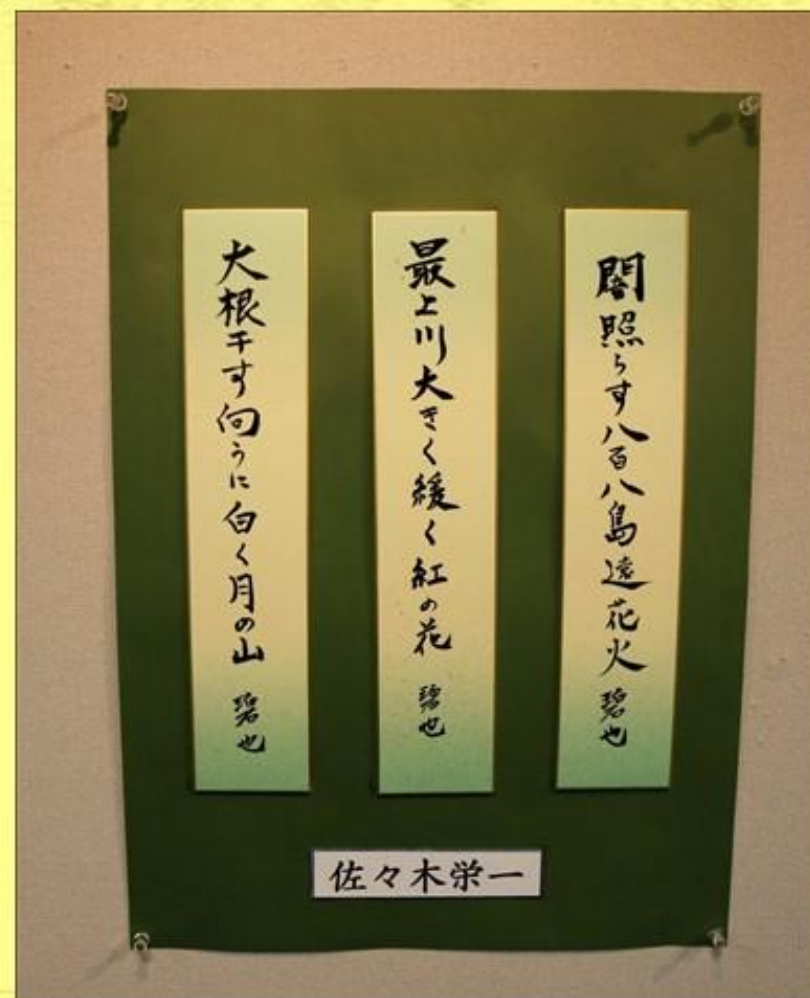 闇照らす八百八島遠花火 碧也
最上川大きく緩く紅の花 碧也
大根干す向うに白く月の山 碧也
佐々木栄一